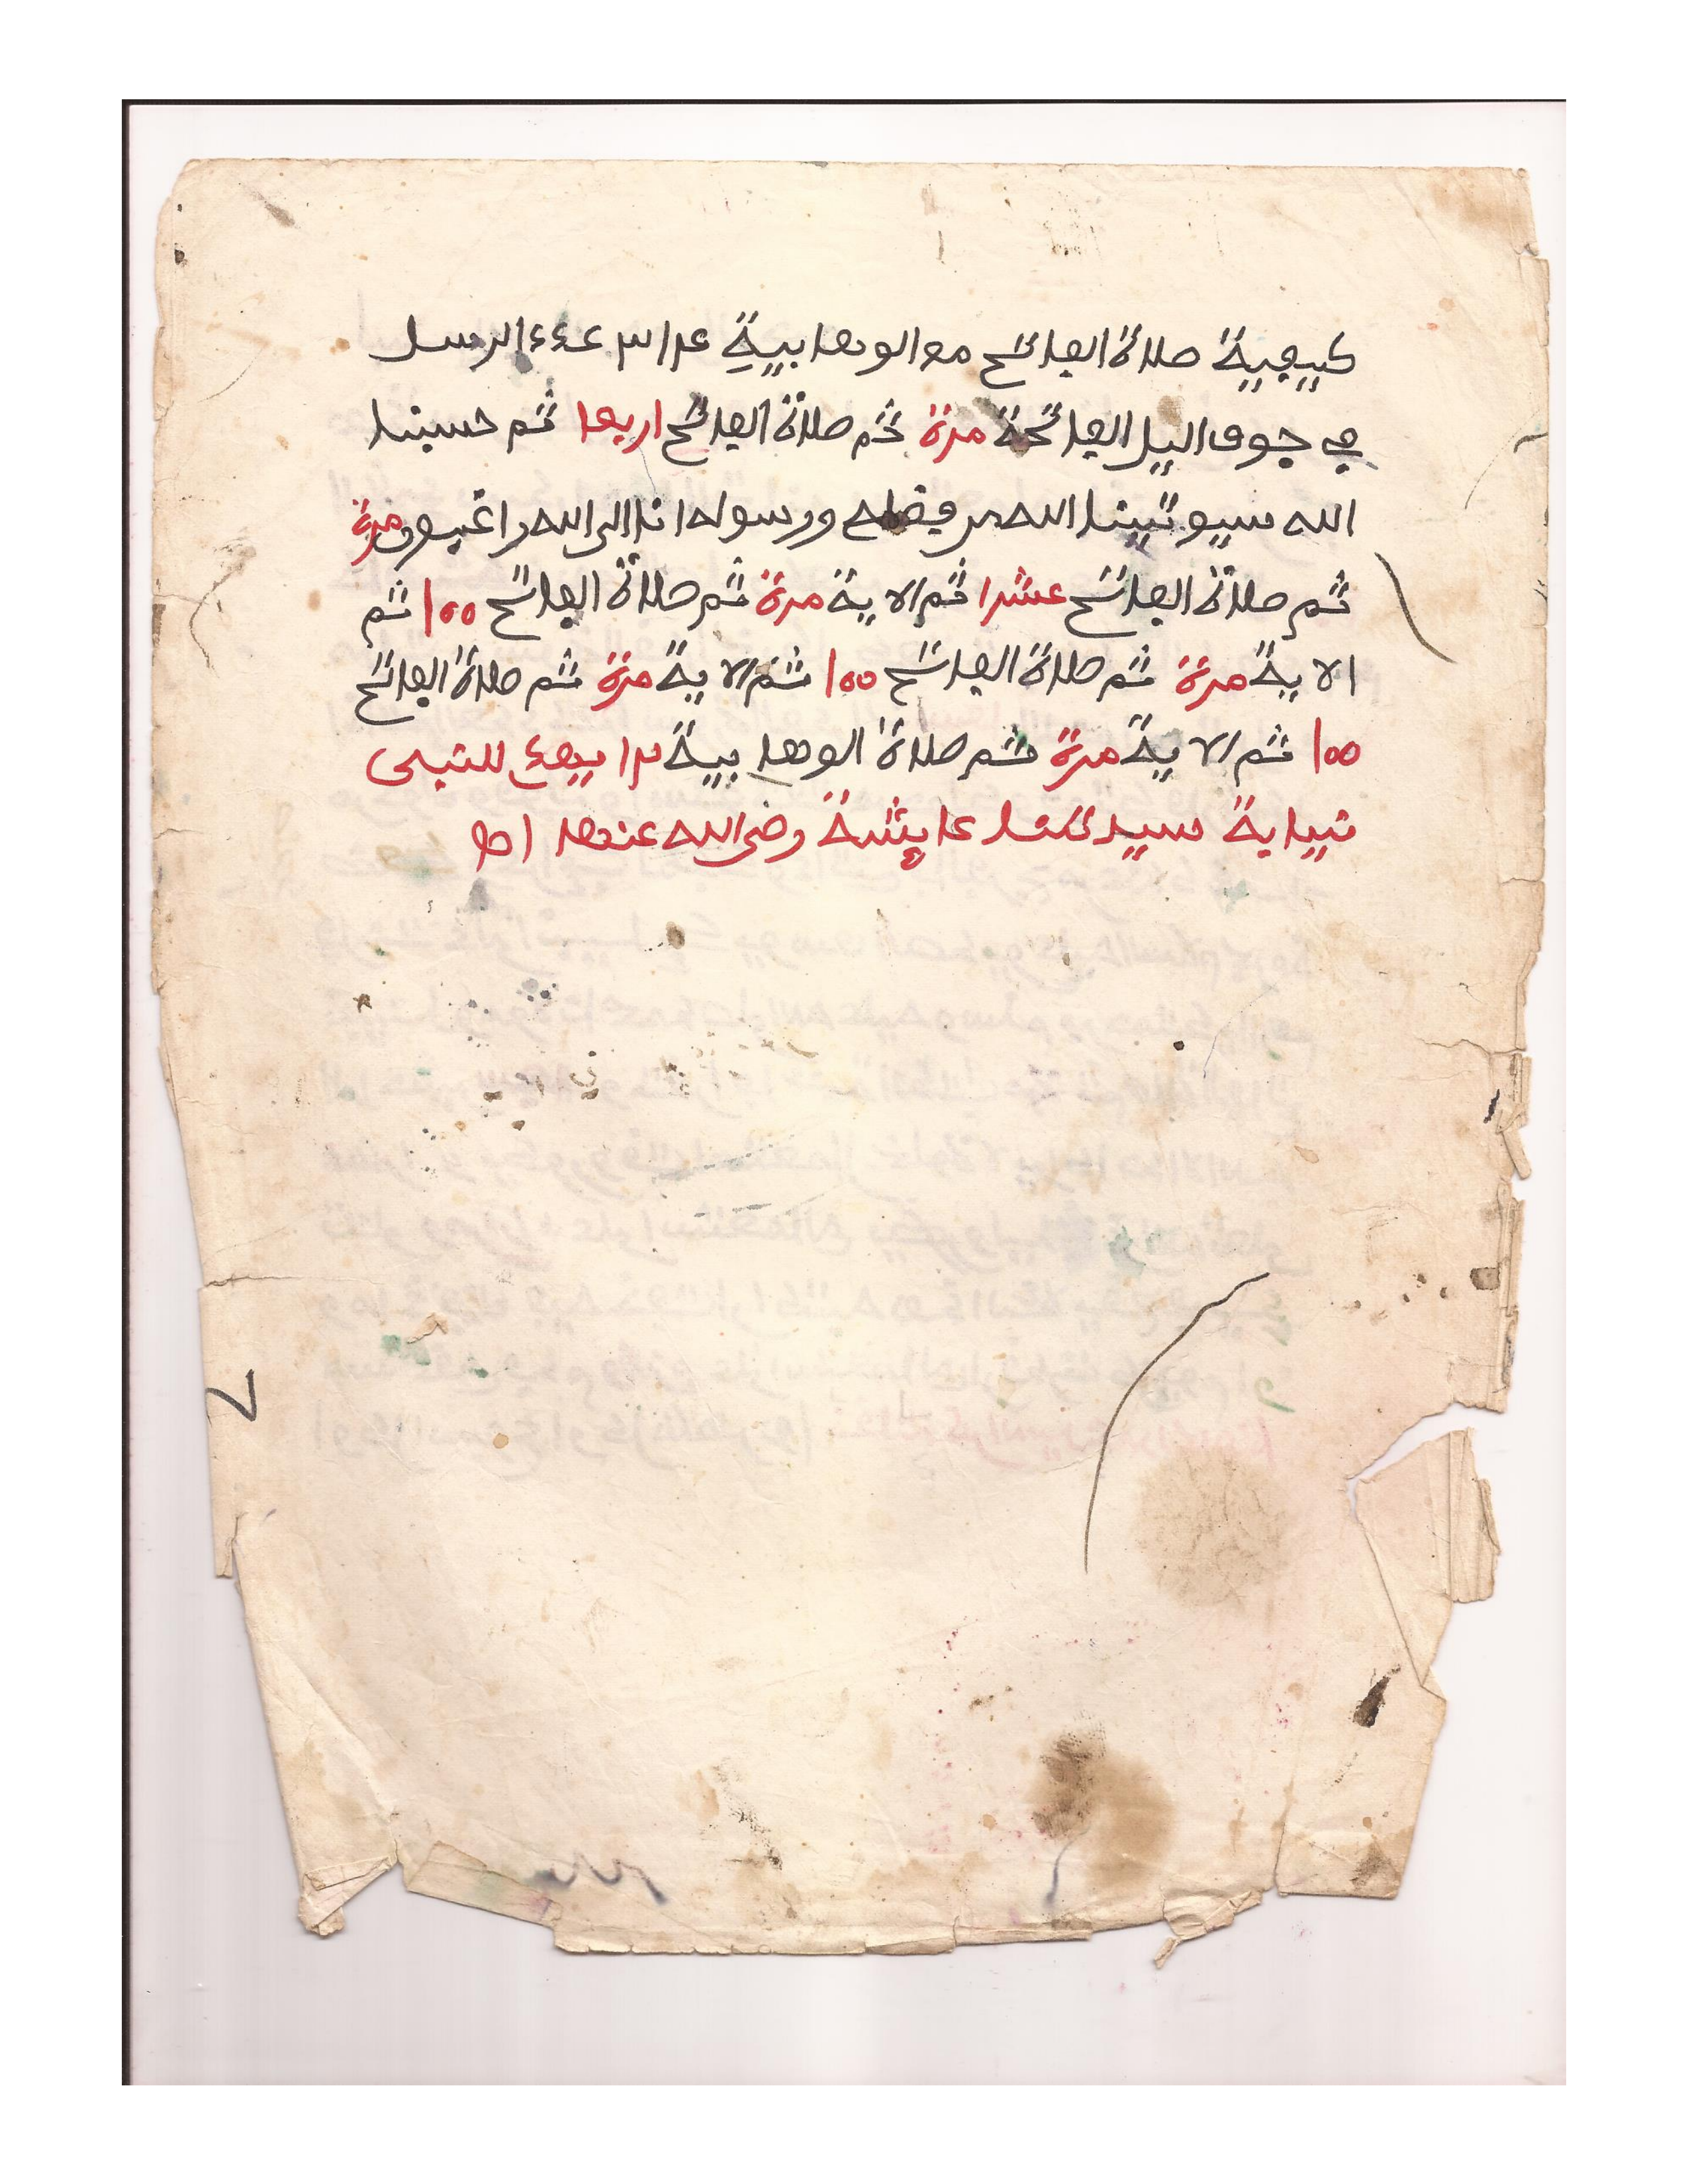 كيفية صلاة الفاتح مع الوهابية ٣١٣ عدد الرسل
في جوف اليل الفاتحة مرة ثم صلاة الفاتح اربعا ثم حسبنا
الله سيوتينا الله من فضله ورسوله انا الى الله راغبون مرة
ثم صلاة الفاتح عشرا ثم الاية مرة ثم صلاة الفاتح ١٠٠ ثم
الاية مرة ثم صلاة الفاتح ١٠٠ ثم الاية مرة ثم صلاة الفاتح
١٠٠ ثم الاية مرة ثم صلاة الوهابية
نيابة سيدتنا عايشة رضي الله عنها